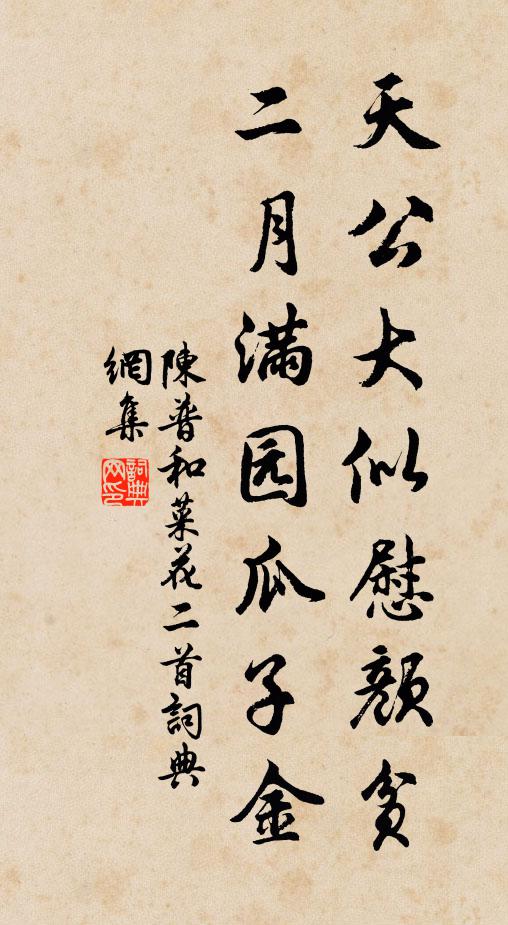 天公大似慰颜貧
二月满园瓜子金
陳普和菜花二首詞典
網集
詞典
网印